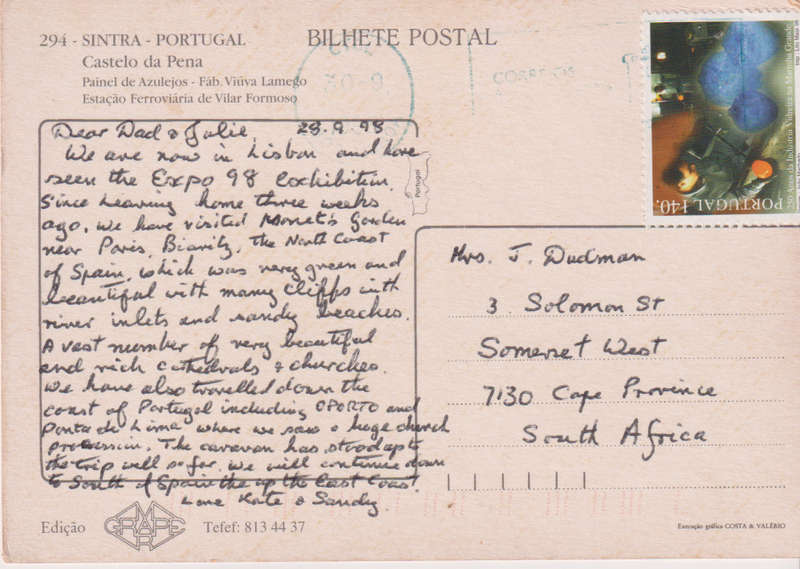 294 - SINTRA - PORTUGAL
Castelo da Pena
Painel de Azulejos - Fáb. Viúva Lamego
Estação Ferroviária de Vilar Formoso
BILHETE POSTAL
CORREIOS
250 Anos da Indústria Vidreira na Marinha Grande
PORTUGAL 140.
Portugal
Dear Dad & Julie, 28.9.98
We are now in Lisbon and have
seen the Expo 98 Exhibition.
Since leaving home three weeks
ago, we have visited Monet's Garden
near Paris, Biaritz, the North Coast
of Spain, which was very green and
beautiful with many cliffs with
river inlets and sandy beaches.
A vast number of very beautiful
and rich cathedrals & churches.
We have also travelled down the
coast of Portugal including OPORTO and
Ponta de Lima where we saw a huge church
procession. The caravan has stood up to
the trip well so far. We will continue down
to South of Spain the up the East Coast.
Love Kate & Sandy
Mrs. J. Dudman
3 Solomon St
Somerset West
7130 Cape Province
South Africa
Edição
GRAPE
MAR
Telef: 813 44 37
Execução gráfica COSTA & VALÉRIO